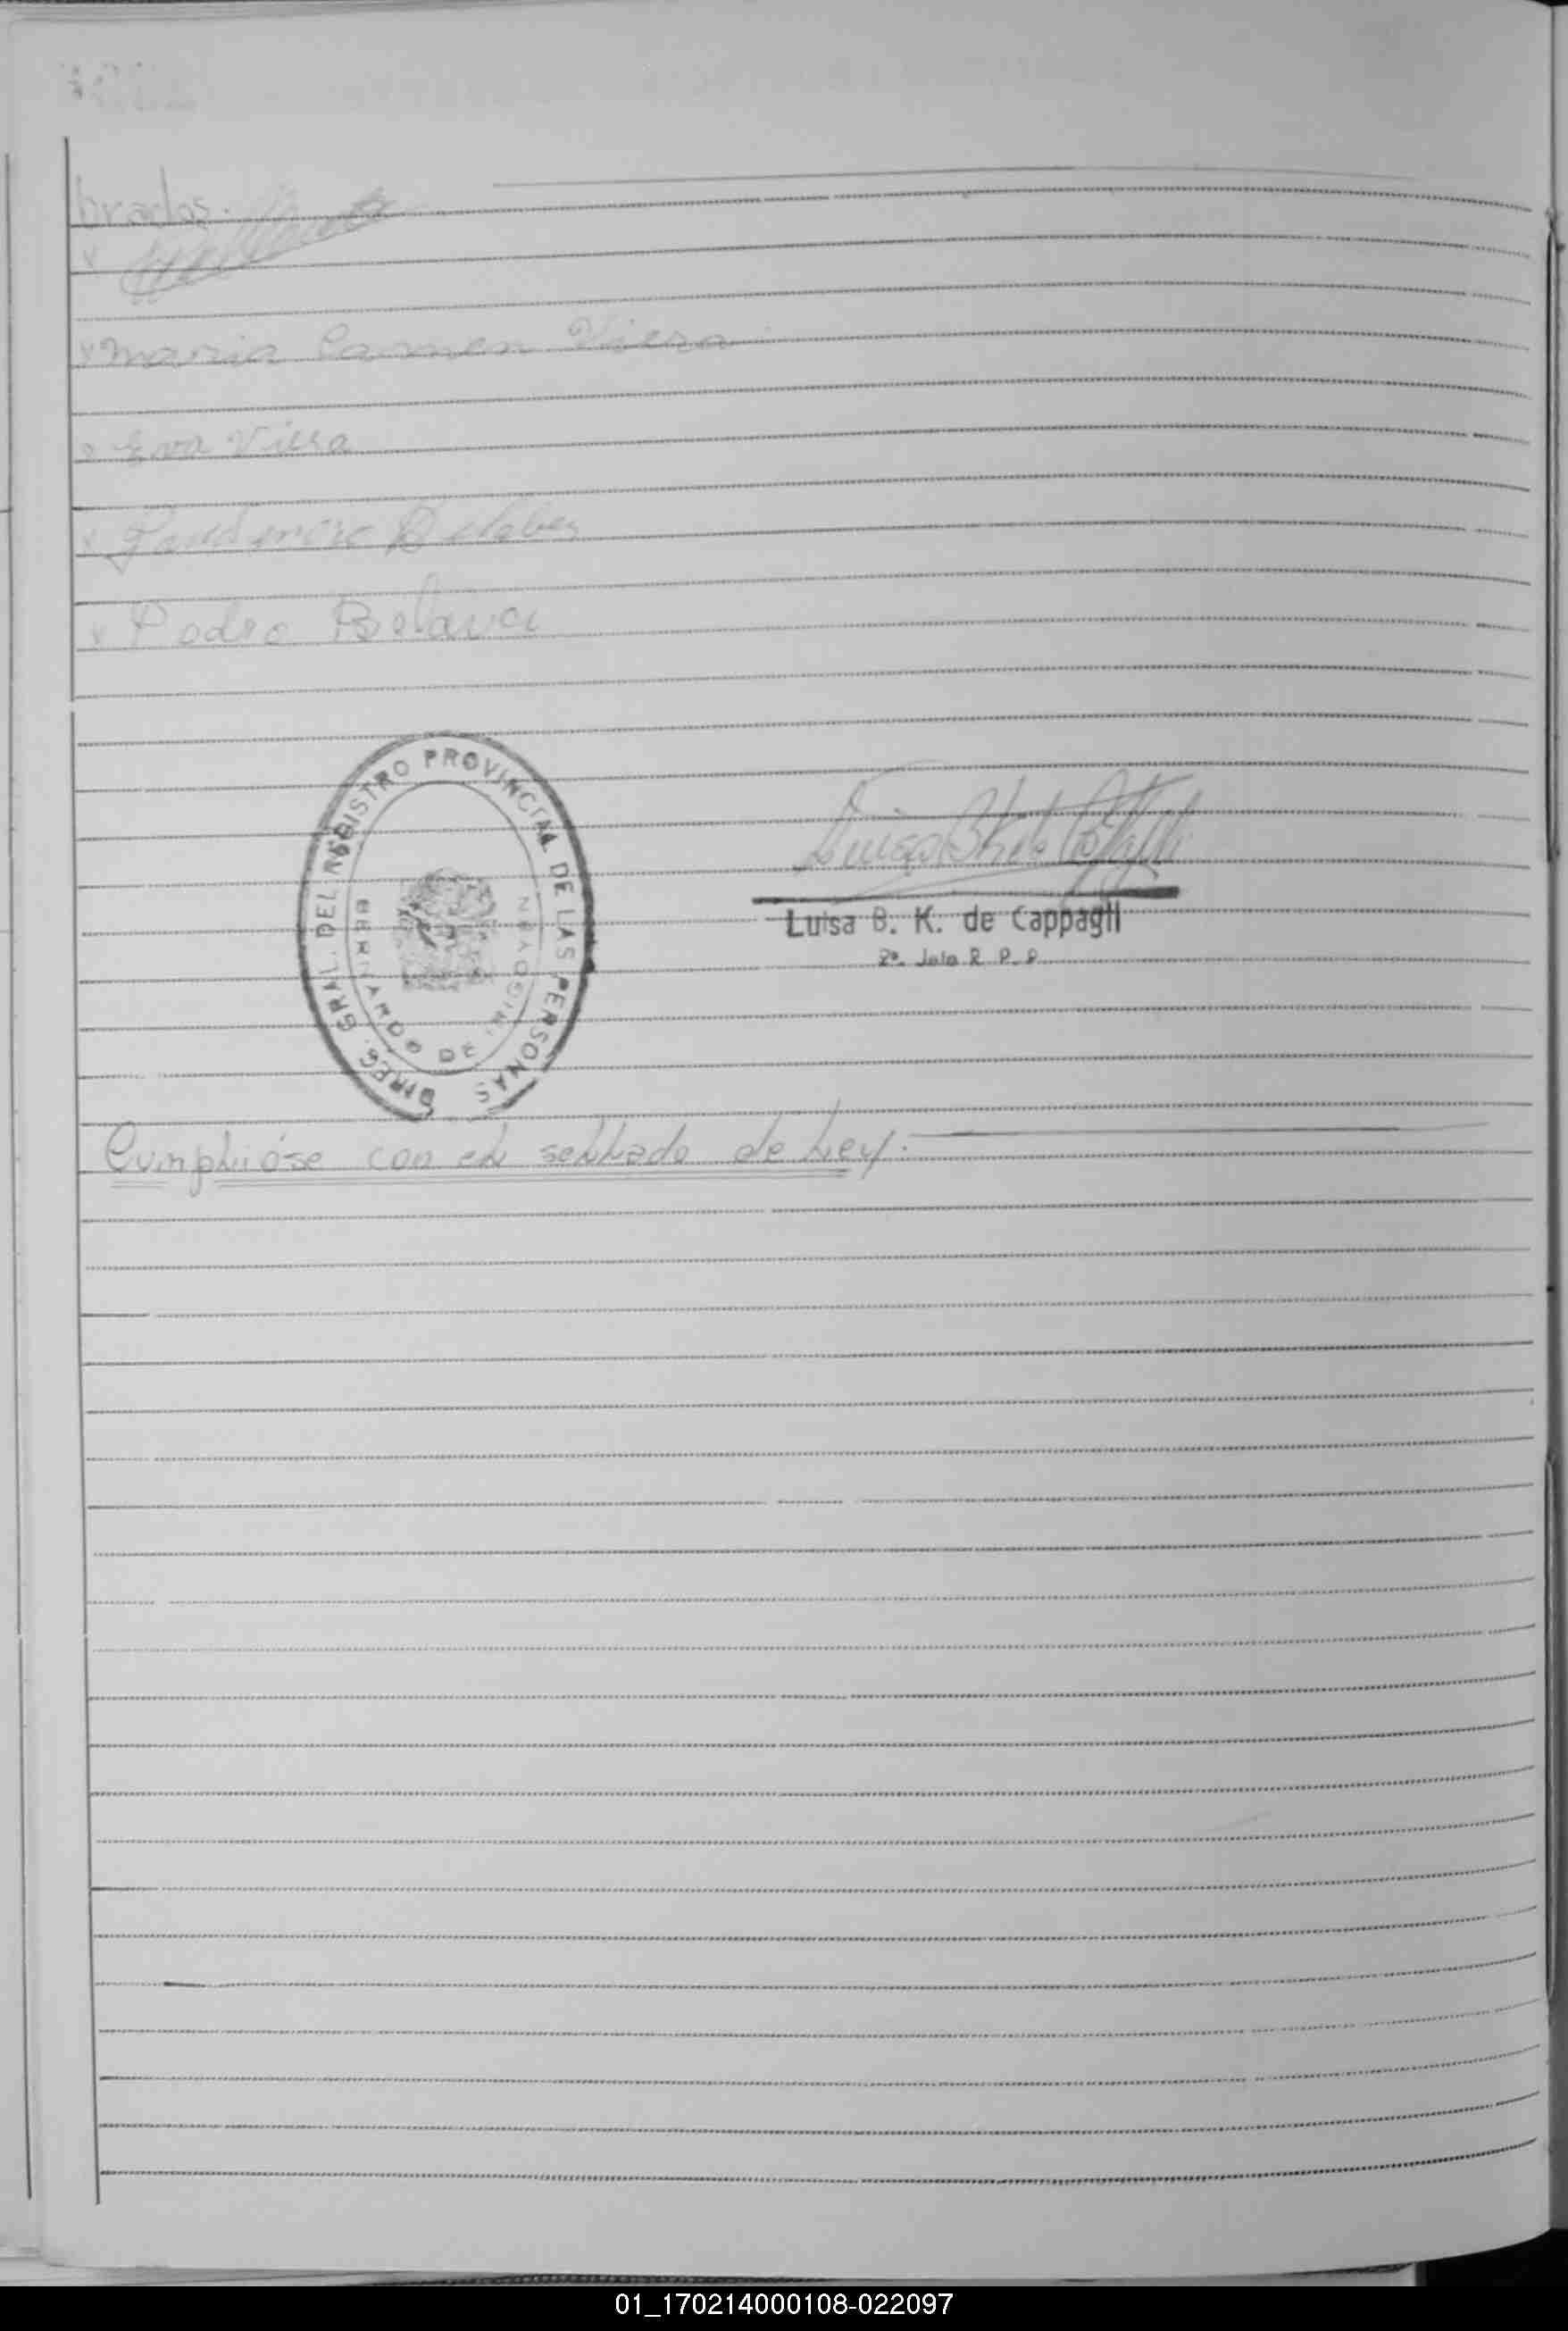 brados.
x
x Maria Carmen Viera
x Eva Viera
x
x Pedro
DIREC. GRAL. DEL REGISTRO PROVINCIAL DE LAS PERSONAS
BERNARDO DE IRIGOYEN
Luisa B. K. de Cappagli
2ª. Jefe R. P. P.
Cumplióse con el sellado de Ley.
01_170214000108-022097